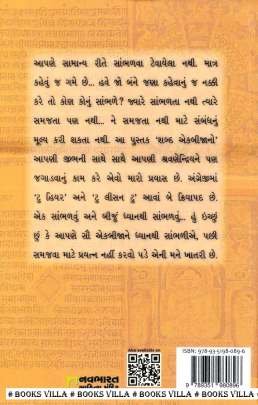 આપણે સામાન્ય રીતે સાંભળવા ટેવાયેલા નથી. માત્ર
કહેવું જ ગમે છે... હવે જો બંને જણા કહેવાનું જ નક્કી
કરે તો કોણ કોનું સાંભળે? જ્યારે સાંભળતા નથી ત્યારે
સમજતા પણ નથી... ને સમજતા નથી માટે સંબંધનું
મૂલ્ય કરી શકતા નથી. આ પુસ્તક 'શબ્દ એકબીજાનો'
આપણી જીભની સાથે સાથે આપણી શ્રવણેન્દ્રિયને પણ
જગાડવાનું કામ કરે એવો મારો પ્રયાસ છે. અંગ્રેજીમાં
'ટુ હિયર' અને 'ટુ લીસન ટુ' આવાં બે ક્રિયાપદ છે.
એક સાંભળવું અને બીજું ધ્યાનથી સાંભળવું... હું ઇચ્છું
છું કે આપણે સૌ એકબીજાને ધ્યાનથી સાંભળીએ, પછી
સમજવા માટે પ્રયત્ન નહીં કરવો પડે એની મને ખાતરી છે.
Also available on
ISBN: 978-93-5198-089-6
9 789351 980896
નવભારત
સાહિત્ય મંદિર
# BOOKS VILLA # BOOKS VILLA # BOOKS VILLA # BOOKS VILLA #